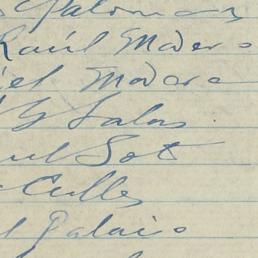 Palomas
Raúl Madero
iel Madera
Y Salas
ul Sot
Culles
l Palacio